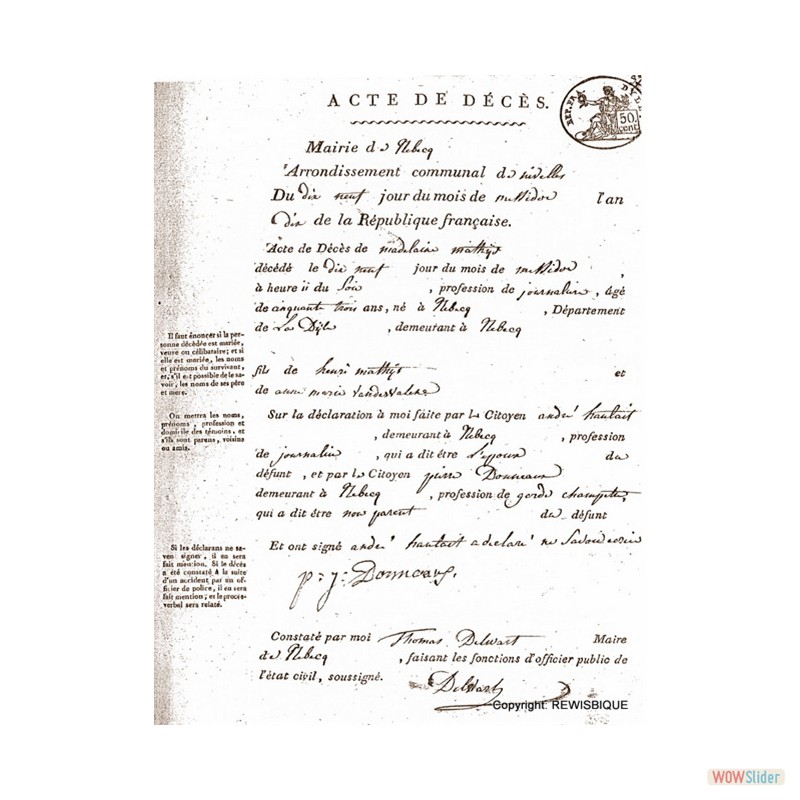 ACTE DE DÉCÈS.
REP. FRA
50.
cent
Mairie de Rebecq
Arrondissement communal de nivelles
Du dix neuf jour du mois de messidor l'an
dix de la République française.
Acte de Décès de madelaine mathijs
décédé le dix neuf jour du mois de messidor ,
à heure ii du Soir , profession de journalière, âgé
de cinquante trois ans, né à Rebecq , Département
de La Dÿle , demeutant à Rebecq
Il faut énoncer si la per-
sonne décédée est mariée,
veuve ou célibataire; et si
elle est mariée, les noms
et prénoms du survivant,
et, s'il est possible de le sa-
voir, les noms de ses père
et mere.
fils de henri mathijs et
de anne marie
On mettra les noms,
prénoms, profession et
domicile des témoins, et
s'ils sont parens, voisins
ou amis.
Sur la déclaration à moi faite par le Citoyen andré hautait
, demeurant à Rebecq , profession
de journalier , qui a dit être L'epoux du
défunt , et par le Citoyen pierre
demeurant à Rebecq , profession de garde champetre,
qui a dit être non parent du defunt
Si les déclarans ne sa-
vent signer, il en sera
fait mention. Si le décès
a été constaté à la suite
d'un accident, par un of-
ficier de police, il en sera
fait mention; et le procès-
verbal sera relaté.
Et ont signé andré hautait a declaré ne Savoir ecrire
p: j:
Constaté par moi Thomas Delwart Maire
de Rebecq , faisant les fonctions d'officier public de
l'état civil, soussigné.
Delwart
Copyright: REWISBIQUE
WOWSlider